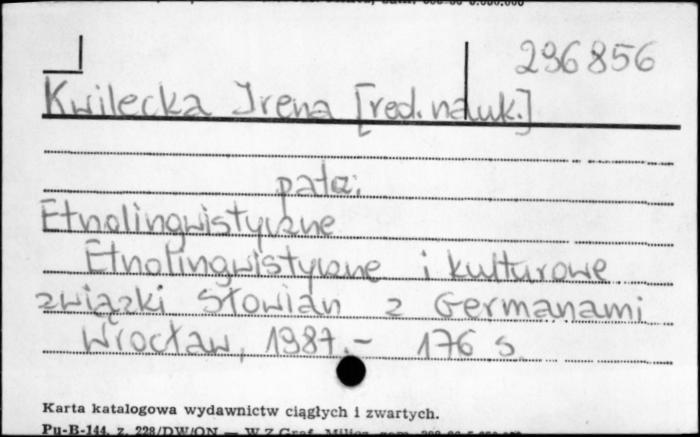 236856
Kwilecka Irena [red. nauk.]
patrz:
Etnolingwistyczne
Etnolingwistyczne i kulturowe
związki Słowian z Germanami
Wrocław, 1987.- 176 s.
Karta katalogowa wydawnictw ciągłych i zwartych.
Pu-B-144, z. 228/DW/ON — W.Z.Graf.